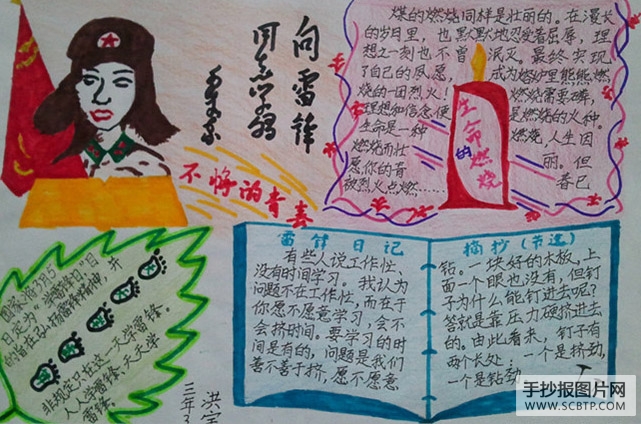 向雷锋
同志学习
毛泽东
不惮的青春
煤的燃烧同样是壮丽的。在漫长
的岁月里，也默默地忍受着屈辱，理
想之一刻也不曾泯灭。最终实现
了自己的夙愿，成为熔炉里熊熊燃
烧的一团烈火！燃烧需要磷，
理想和信念便是燃烧的火种。
生命是一种燃烧，人生因
燃烧而壮丽。但
愿你的青春已
被烈火点燃……
生命的燃烧
3月5
日定为"学雷锋日"目
的旨在弘扬雷锋精神，并
非规定只在这一天学雷锋。
人人学雷锋，天天学
雷锋。
雷锋日记
有些人说工作忙、
没有时间学习。我认为
问题不在工作忙，而在于
你愿不愿意学习，会不
会挤时间。要学习的时
间是有的，问题是我们
善不善于挤，愿不愿意
摘抄(节选)
钻。一块好的木板，上
面一个眼也没有，但钉
子为什么能钉进去呢?
答就是靠压力硬挤进去
的。由此看来，钉子有
两个长处：一个是挤劲，
一个是钻劲
三年3
洪宇
手抄报图片网
WWW.SCBTP.COM